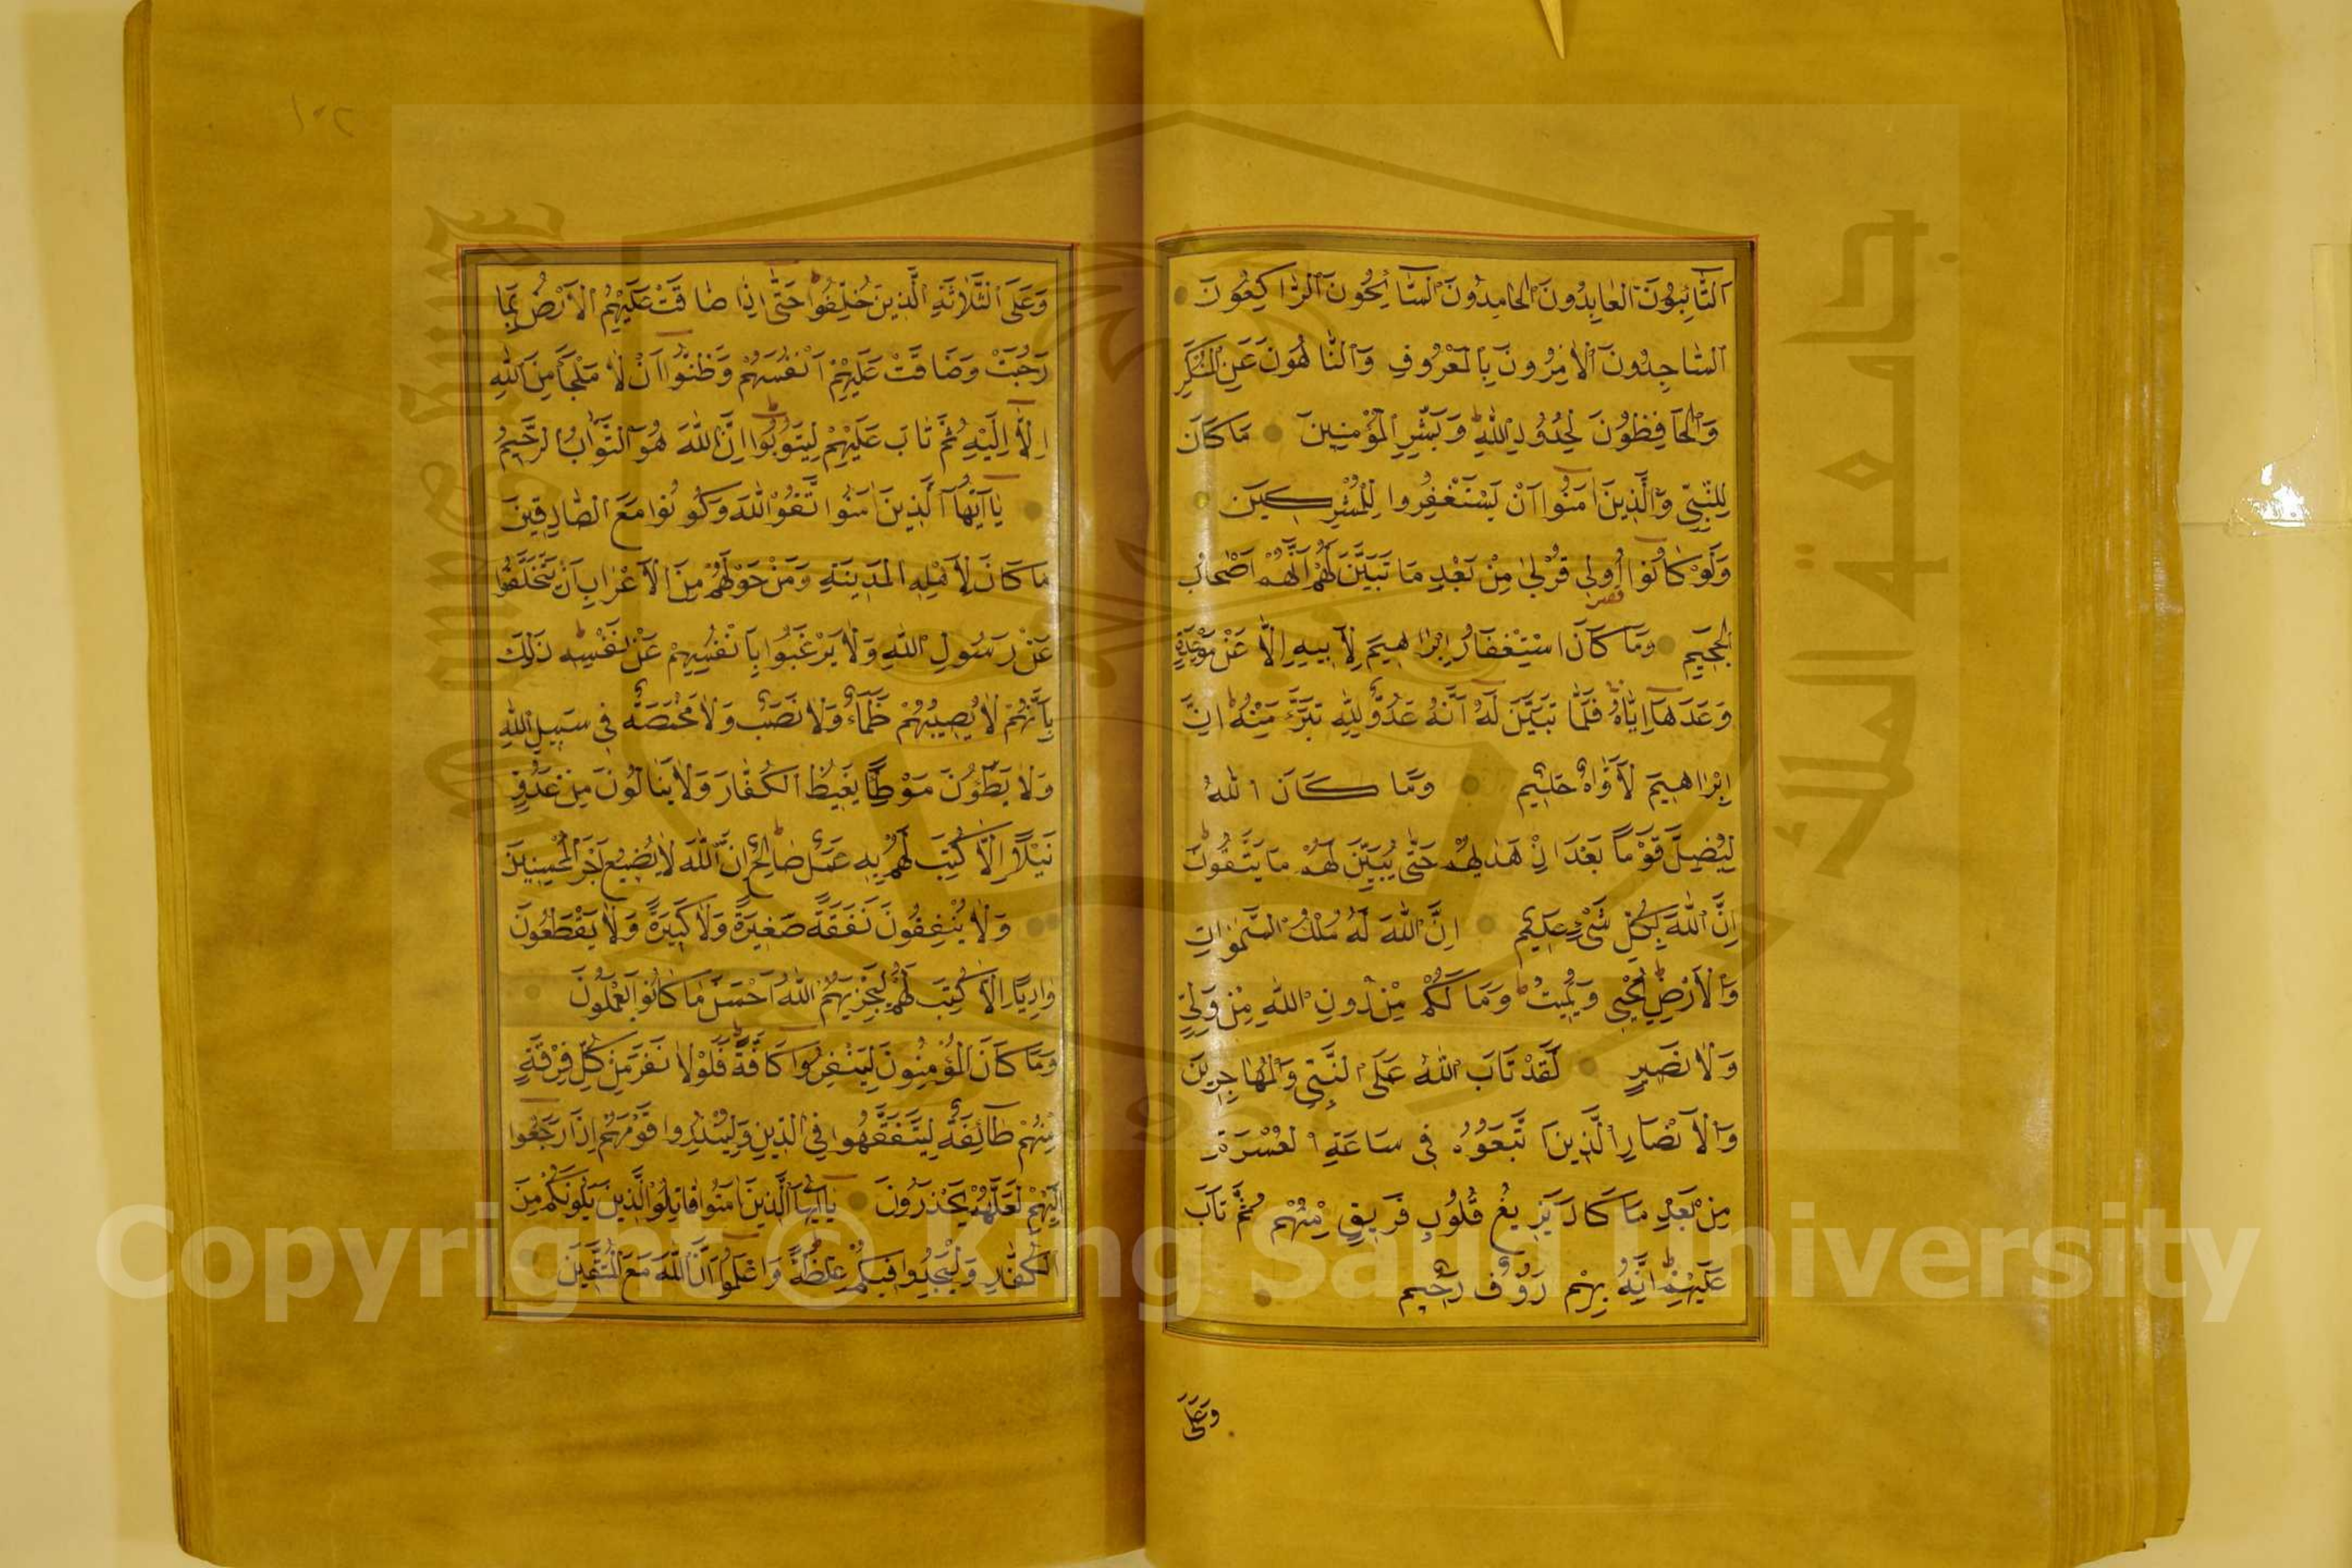 اَلتَّائِبُونَ الْعَابِدُونَ الْحَامِدُونَ السَّائِحُونَ الرَّاكِعُونَ
السَّاجِدُونَ الْاٰمِرُونَ بِالْمَعْرُوفِ وَالنَّاهُونَ عَنِ الْمُنْكَرِ
وَالْحَافِظُونَ لِحُدُودِ اللّٰهِ وَبَشِّرِ الْمُؤْمِنِينَ مَا كَانَ
لِلنَّبِيِّ وَالَّذِينَ اٰمَنُوا اَنْ يَسْتَغْفِرُوا لِلْمُشْرِكِينَ
وَلَوْ كَانُوا اُولِي قُرْبٰى مِنْ بَعْدِ مَا تَبَيَّنَ لَهُمْ اَنَّهُمْ اَصْحَابُ
الْجَحِيمِ وَمَا كَانَ اسْتِغْفَارُ اِبْرَاهِيمَ لِاَبِيهِ اِلَّا عَنْ مَوْعِدَةٍ
وَعَدَهَا اِيَّاهُ فَلَمَّا تَبَيَّنَ لَهُ اَنَّهُ عَدُوٌّ لِلّٰهِ تَبَرَّءَ مِنْهُ اِنَّ
اِبْرَاهِيمَ لَاَوَّاهٌ حَلِيمٌ وَمَا كَانَ اللّٰهُ
لِيُضِلَّ قَوْمًا بَعْدَ اِذْ هَدٰيهُمْ حَتّٰى يُبَيِّنَ لَهُمْ مَا يَتَّقُونَ
اِنَّ اللّٰهَ بِكُلِّ شَيْءٍ عَلِيمٌ اِنَّ اللّٰهَ لَهُ مُلْكُ السَّمٰوَاتِ
وَالْاَرْضِ يُحْيِي وَيُمِيتُ وَمَا لَكُمْ مِنْ دُونِ اللّٰهِ مِنْ وَلِيٍّ
وَلَا نَصِيرٍ لَقَدْ تَابَ اللّٰهُ عَلَى النَّبِيِّ وَالْمُهَاجِرِينَ
وَالْاَنْصَارِ الَّذِينَ اتَّبَعُوهُ فِي سَاعَةِ الْعُسْرَةِ
مِنْ بَعْدِ مَا كَادَ يَزِيغُ قُلُوبُ فَرِيقٍ مِنْهُمْ ثُمَّ تَابَ
عَلَيْهِمْ اِنَّهُ بِهِمْ رَؤُفٌ رَحِيمٌ
وَعَلَى
١٠٢
وَعَلَى الثَّلَاثَةِ الَّذِينَ خُلِّفُوا حَتّٰى اِذَا ضَاقَتْ عَلَيْهِمُ الْاَرْضُ بِمَا
رَحُبَتْ وَضَاقَتْ عَلَيْهِمْ اَنْفُسُهُمْ وَظَنُّوا اَنْ لَا مَلْجَاَ مِنَ اللّٰهِ
اِلَّا اِلَيْهِ ثُمَّ تَابَ عَلَيْهِمْ لِيَتُوبُوا اِنَّ اللّٰهَ هُوَ التَّوَّابُ الرَّحِيمُ
يَا اَيُّهَا الَّذِينَ اٰمَنُوا اتَّقُوا اللّٰهَ وَكُونُوا مَعَ الصَّادِقِينَ
مَا كَانَ لِاَهْلِ الْمَدِينَةِ وَمَنْ حَوْلَهُمْ مِنَ الْاَعْرَابِ اَنْ يَتَخَلَّفُوا
عَنْ رَسُولِ اللّٰهِ وَلَا يَرْغَبُوا بِاَنْفُسِهِمْ عَنْ نَفْسِهِ ذٰلِكَ
بِاَنَّهُمْ لَا يُصِيبُهُمْ ظَمَاٌ وَلَا نَصَبٌ وَلَا مَخْمَصَةٌ فِي سَبِيلِ اللّٰهِ
وَلَا يَطَؤُنَ مَوْطِئًا يَغِيظُ الْكُفَّارَ وَلَا يَنَالُونَ مِنْ عَدُوٍّ
نَيْلًا اِلَّا كُتِبَ لَهُمْ بِهِ عَمَلٌ صَالِحٌ اِنَّ اللّٰهَ لَا يُضِيعُ اَجْرَ الْمُحْسِنِينَ
وَلَا يُنْفِقُونَ نَفَقَةً صَغِيرَةً وَلَا كَبِيرَةً وَلَا يَقْطَعُونَ
وَادِيًا اِلَّا كُتِبَ لَهُمْ لِيَجْزِيَهُمُ اللّٰهُ اَحْسَنَ مَا كَانُوا يَعْمَلُونَ
وَمَا كَانَ الْمُؤْمِنُونَ لِيَنْفِرُوا كَافَّةً فَلَوْلَا نَفَرَ مِنْ كُلِّ فِرْقَةٍ
مِنْهُمْ طَائِفَةٌ لِيَتَفَقَّهُوا فِي الدِّينِ وَلِيُنْذِرُوا قَوْمَهُمْ اِذَا رَجَعُوا
اِلَيْهِمْ لَعَلَّهُمْ يَحْذَرُونَ يَا اَيُّهَا الَّذِينَ اٰمَنُوا قَاتِلُوا الَّذِينَ يَلُونَكُمْ مِنَ
الْكُفَّارِ وَلْيَجِدُوا فِيكُمْ غِلْظَةً وَاعْلَمُوا اَنَّ اللّٰهَ مَعَ الْمُتَّقِينَ
جامعة الملك سعود
King Saud University
1957
Copyright © King Saud University